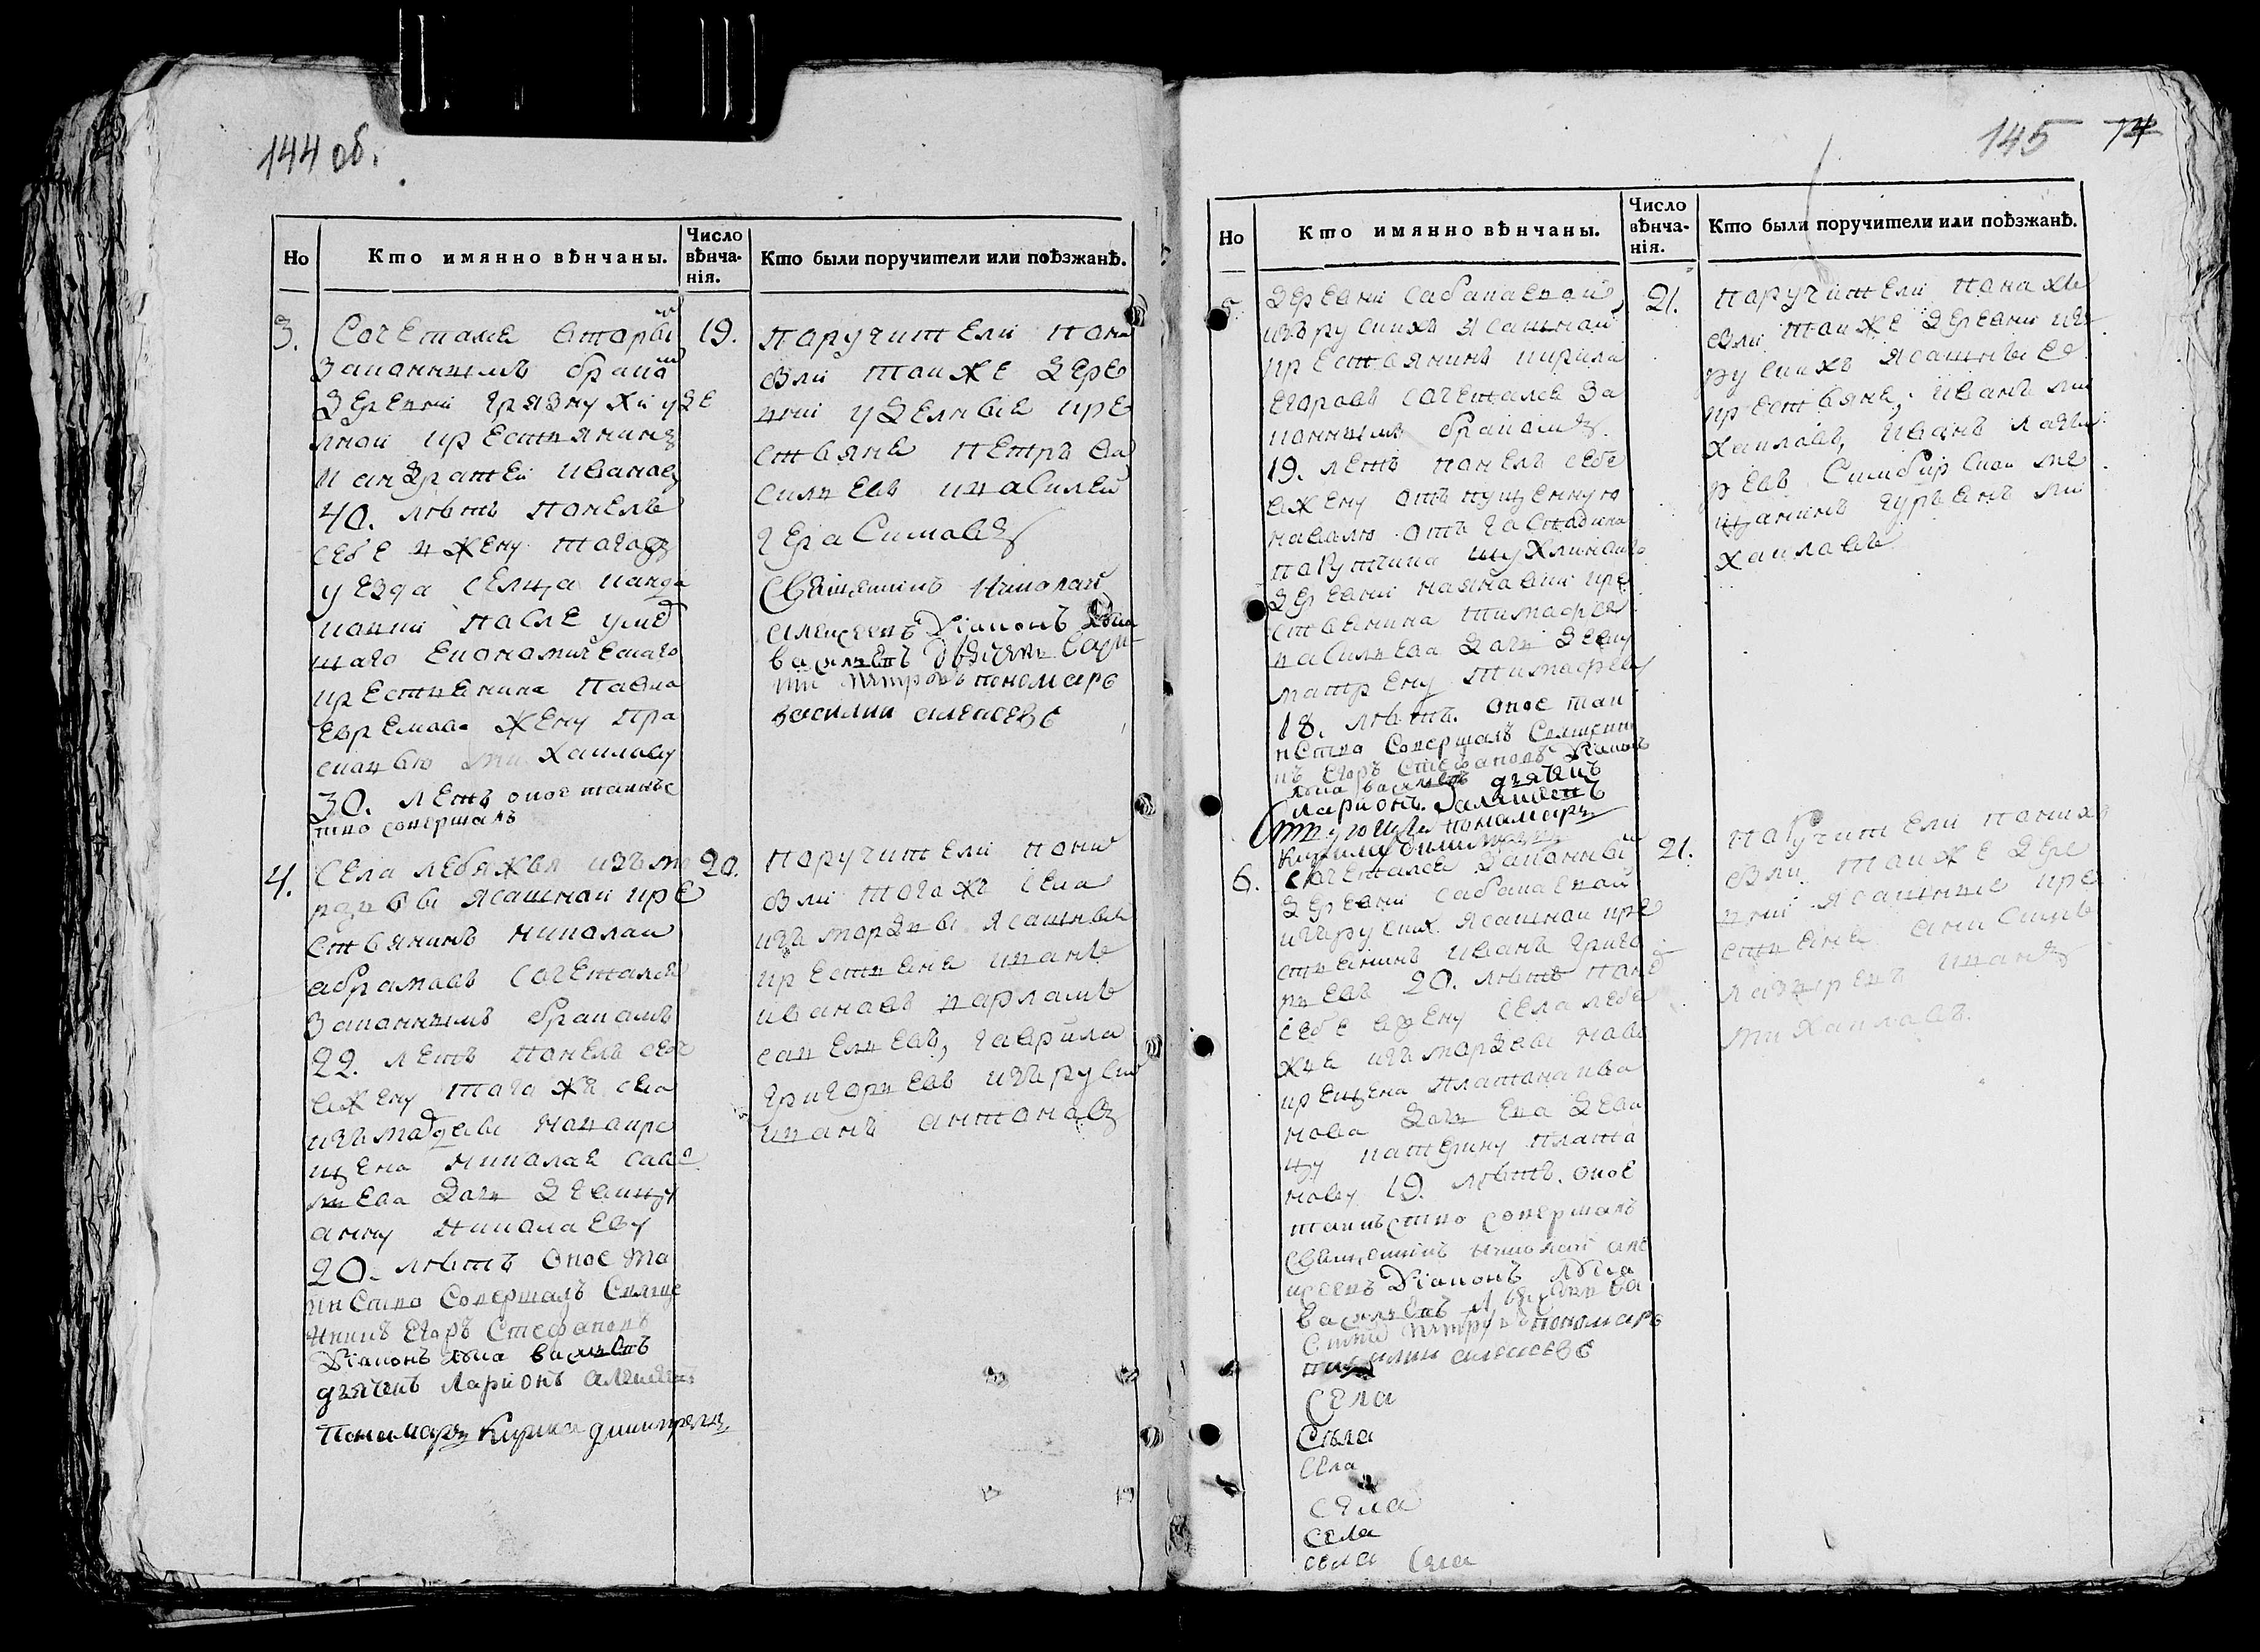 144 об.
Но
Кто имянно вѣнчаны.
Число вѣнча-
нія.
Кто были поручители или поѣзжанѣ.
3.
Сочетался вторы
законнымъ брако
деревни грязнухи уде
лной крестьянинъ
Кандратей Ивановъ
40. лѣтъ понелъ
себе в жену тогожъ
уезда селца
после умер
шаго економическаго
крестьянина Павла
Ефремова жену Пра
сковью михаилову
30. летъ оное таинъс
тво совершалъ
19.
поручители пони
были тойже дере
вни уделные кре
стьяне Петръ Ва
сильевъ Василей
Герасимовъ
Священникъ Николай
Алексеевъ Діаконъ Яковъ
Васильевъ
Петровъ пономарь
Василии Алексеевъ
4.
Села лебяжья изъ мо
рдвы ясашной кре
стьянинъ николай
абрамовъ сочетался
законнымъ бракомъ
22. летъ понелъ себе
вжену того жъ села
измордвы новокре
щена Николая Саве
льева дочь девицу
анну николаеву
20. лѣтъ оное та
инство совершалъ Свяще
нникъ Егоръ Стефановъ
Діаконъ Яковъ Васильевъ
дьячекъ Ларионъ Алексеевъ
Пономарь Кирила Димитриевъ
20.
поручители пони
были того жъ села
измордвы ясашные
крестьяне Иванъ
Ивановъ Варламъ
Савельевъ, Гаврила
Григорьевъ изруских
Иванъ Антоновъ
145 74
Но
Кто имянно вѣнчаны.
Число
вѣнча-
нія.
Кто были поручители или поѣзжанѣ.
5.
деревни сабакаевой
изъ рускихъ ясашной
крестьянинъ Кирила
Егоровъ сочетался за
коннымъ бракомъ
19. летъ понелъ себе
вжену отпущенную
наволю отъ гасподина
порутчика
деревни кре
стьянина Тимофея
Васильева дочь девку
матрену Тимофееву
18. лѣтъ. оное таи
нство совершалъ Священни
къ Егоръ Стефановъ Діаконъ
Яковъ Васильевъ дьячекъ
Ларионъ Алексеевъ
пономарь
Кирила Димитриевъ
21.
поручители пони хъ
были тойже деревни из
рускихъ ясашные
крестьяне, Иванъ ми
хаиловъ, Иванъ Лазы
ревъ Симбирской ме
щанинъ Гурьянъ ми
хаиловъ
6.
сочетался законны
деревни сабакаевой
изруских ясашной кре
стьянинъ Иванъ Григо
рьевъ 20. лѣтъ поне
себе вжену села лебя
жья измордвы ново
крещена Платона ива
нова дочь ево деви
цу катерину плато
нову 19. лѣтъ. оное
таинъство совершалъ
Священникъ Николай Але
ксеевъ Діаконъ Яковъ
Васильевъ
Петровъ пономарь
Василии Алексеевъ
Села
Села
Села
Села
Села
Села Села
21.
поручители пониж
были тойже дере
вни ясашные кре
стьяне анисимъ
Лазыревъ Иванъ
Михаиловъ.